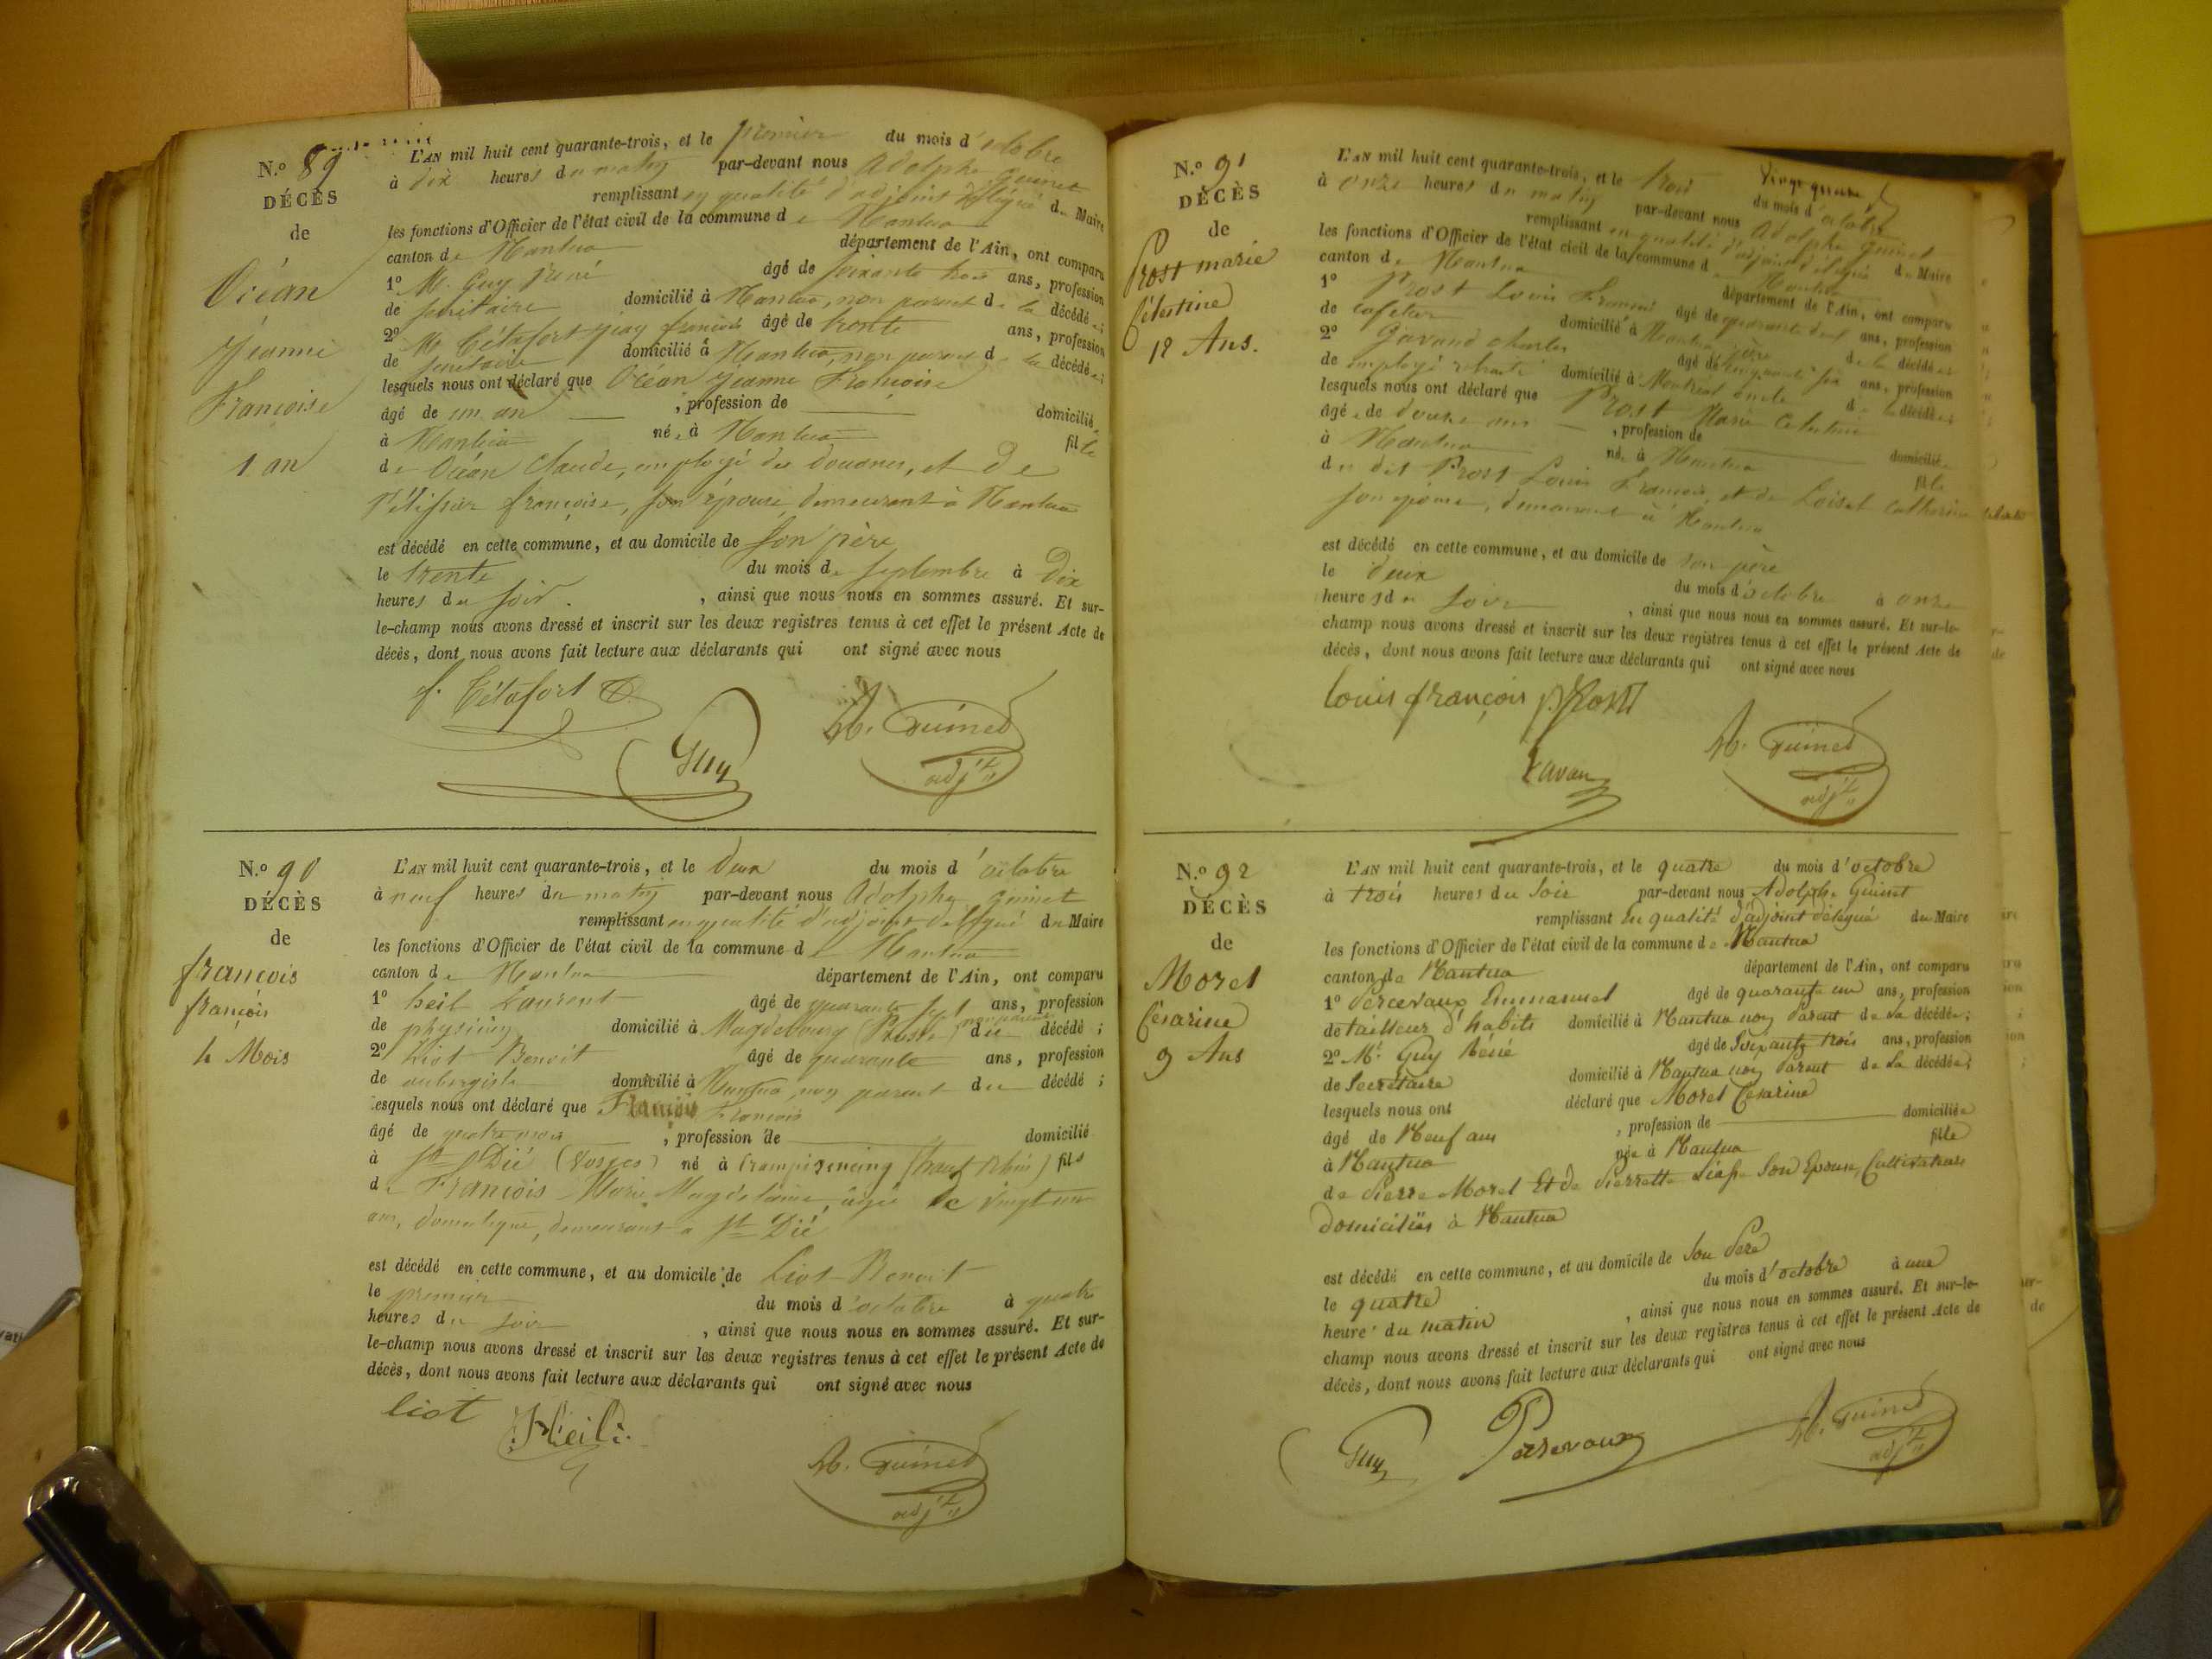 N.o 89
DÉCÈS
de
Océan
Jeanne
Françoise
1 an
L'AN mil huit cent quarante-trois, et le premier du mois d'octobre
à dix heures du matin par-devant nous Adolphe Guinet
remplissant en qualité d'adjoint délégué du Maire
les fonctions d'Officier de l'état civil de la commune de Nantua
canton de Nantua département de l'Ain, ont comparu
1o M. Guy René âgé de soixante trois ans, profession
de secrétaire domicilié à Nantua, non parent de la décédée;
2o Mr Cétafort jean françois âgé de trente ans, profession
de domicilié à Nantua, non parent de la décédée;
lesquels nous ont déclaré que Océan Jeanne Françoise
âgé de un an , profession de domiciliée
à Nantua née à Nantua fille
de Océan Claude, employé des douanes, et de
françoise, son épouse demeurant à Nantua
est décédé en cette commune, et au domicile de son père
le trente du mois de septembre à dix
heures du soir. , ainsi que nous nous en sommes assuré. Et sur-
le-champ nous avons dressé et inscrit sur les deux registres tenus à cet effet le présent Acte de
décès, dont nous avons fait lecture aux déclarants qui ont signé avec nous
f. Cétafort
Guy
A. Guinet
adjt
N.o 90
DÉCÈS
de
françois
françois
4 Mois
L'AN mil huit cent quarante-trois, et le deux du mois d'octobre
à neuf heures du matin par-devant nous Adolphe Guinet
remplissant en qualité d'adjoint délégué du Maire
les fonctions d'Officier de l'état civil de la commune de Nantua
canton de Nantua département de l'Ain, ont comparu
1o heil Laurent âgé de quarante sept ans, profession
de physicien domicilié à Magdebourg (Prusse) non parent du décédé;
2o Liot Benoit âgé de quarante ans, profession
de aubergiste domicilié à Nantua, non parent du décédé;
lesquels nous ont déclaré que François François
âgé de quatre mois , profession de domicilié
à St Dié (Vosges) né à (haut Rhin) fils
de François Marie Magdelaine, âgée de vingt un
ans, domestique, demeurant à St Dié
est décédé en cette commune, et au domicile de Liot Benoit
le premier du mois d'octobre à quatre
heures du soir , ainsi que nous nous en sommes assuré. Et sur-
le-champ nous avons dressé et inscrit sur les deux registres tenus à cet effet le présent Acte de
décès, dont nous avons fait lecture aux déclarants qui ont signé avec nous
liot
Heil
A. Guinet
adjt
N.o 91
DÉCÈS
de
Prost marie
Célestine
12 Ans.
L'AN mil huit cent quarante-trois, et le trois du mois d'octobre
à onze heures du matin par-devant nous Adolphe Guinet
remplissant en qualité d'adjoint délégué du Maire
les fonctions d'Officier de l'état civil de la commune de Nantua
canton de Nantua département de l'Ain, ont comparu
1o Prost Louis François âgé de quarante deux ans, profession
de cafetier domicilié à Nantua père de la décédée
2o Gavand charles âgé de cinquante six ans, profession
de employé retraité domicilié à Montréal oncle de la décédée;
lesquels nous ont déclaré que Prost Marie Célestine
âgée de douze ans , profession de domiciliée
à Nantua née à Nantua fille
du dit Prost Louis François, et de Loisel Catherine
son épouse, demeurant à Nantua
est décédé en cette commune, et au domicile de son père
le deux du mois d'octobre à onze
heures du soir , ainsi que nous nous en sommes assuré. Et sur-le-
champ nous avons dressé et inscrit sur les deux registres tenus à cet effet le présent Acte de
décès, dont nous avons fait lecture aux déclarants qui ont signé avec nous
louis françois prost
A. Guinet
adjt
N.o 92
DÉCÈS
de
Morel
Césarine
9 Ans
L'AN mil huit cent quarante-trois, et le quatre du mois d'octobre
à trois heures du soir par-devant nous Adolphe Guinet
remplissant en qualité d'adjoint délégué du Maire
les fonctions d'Officier de l'état civil de la commune de Nantua
canton de Nantua département de l'Ain, ont comparu
1o Percevaux Emmanuel âgé de quarante un ans, profession
de tailleur d'habits domicilié à Nantua non Parent de la décédée;
2o Mr Guy Réné âgé de soixante trois ans, profession
de Secrétaire domicilié à Nantua non Parent de la décédée;
lesquels nous ont déclaré que Morel Césarine
âgé de Neuf ans , profession de domiciliée
à Nantua née à Nantua fille
de Pierre Morel Et de Pierrette Son Epouse, Cultivateurs
Domiciliés à Nantua
est décédé en cette commune, et au domicile de son Père
le quatre du mois d'octobre à une
heure du matin , ainsi que nous nous en sommes assuré. Et sur-le-
champ nous avons dressé et inscrit sur les deux registres tenus à cet effet le présent Acte de
décès, dont nous avons fait lecture aux déclarants qui ont signé avec nous
Guy
Percevaux
A. Guinet
adjt